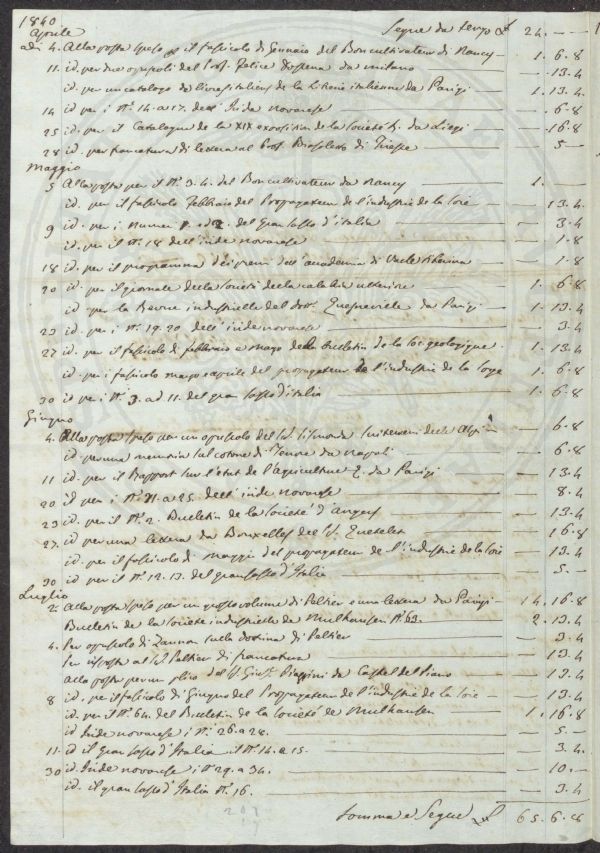 1840
Aprile Segue da tergo £ 24. —
adi 4. Alla posta speso per il fascicolo di Gennaio del Boncultivateur di Nancy — 1. 6. 8
11. id. per due opuscoli del Prof. Felice Dossena da Milano — 13. 4
id. per un catalogo de livres italiens de la Librerie italienne da Parigi — 1. 13. 4
14 id per i Nⁱ. 14. a 17. dell' Iride novarese — . 6. 8
25 id. per il Catalogue de la XIX exposition de la Société h. da Liegi — 16. 8
28 id. per francatura di lettera al Prof. Biasoletto di Trieste — 5 —
Maggio
5 Alla posta per il Nº. 3. 4. del Boncultivateur da Nancy — 1. —
id. per il fascicolo Febbraio del Propagateur de l'industrie de la Soie — 13. 4
9 id. per i numeri 1. e 2. del Gran Sasso d'Italia — 3. 4
id. per il Nº. 18 dell'iride novarese — 1. 8
18 id. per il programma dei premi dell'accademia di — 1. 8
20 id. per il giornale della Società della Calabria ulteriore — 1. 6. 8
id. per la Revue industrielle del Dott. Quesneville da Parigi — 1. 13. 4
23 id. per i Nⁱ. 19. 20 dell'iride novarese — 3. 4
27 id. per il fascicolo di febbraio e marzo della bulletin de la Soc. geologique — 1. 13. 4
id. per i fascicoli marzo e aprile del propagateur de l'industrie de la Soye — 1. 6. 8
30 id per i Nⁱ. 3. ad 11. del gran sasso d'italia — 1. 6. 8
Giugno
4. Alla posta speso per un opuscolo del Sismonda sui terreni delle Alpi — 6. 8
id. per una memoria sul cotone di Tenore da Napoli — 6. 8
11 id. per il Rapport sur l'etat de l'agriculture da Parigi — 13. 4
20 id per i Nⁱ. 21. a 25. dell'iride novarese — 8. 4
23 id. per il Nº. 2. Bulletin de la Societé d'Angers — 13. 4
27. id. per una lettera da Bruxelles del S. Quetelet — 16. 8
id. per il fascicolo di maggio del propagateur de l'industrie de la Soie — 13. 4
30 id per il Nº. 12. 13. del gran Sasso d'Italia — 5. —
Luglio
2. Alla posta speso per un grosso volume di Peltier e una lettera da Parigi — 14. 16. 8
Bulletin de la Société industrielle de Mulhausen Nº 63. — 2. 13. 4
4. Per opuscolo di Zannon sulla dottrina di Peltier — 3. 4
Per risposta al Sᵣ. Peltier di francatura — 13. 4
Alla posta per un plico del S. Giusᵉ. da Castel del Piano — 13. 4
8 id. per il fascicolo di Giugno del Propagateur de l'industrie de la Soie — 13. 4
id. per il Nº. 64. del Bulletin de la Société de Mulhausen — 1. 16. 8
id Iride novarese i Nⁱ. 26. a 28. — 5. —
11. id il Gran Sasso d'Italia il Nⁱ. 14. a 15. — 3. 4.
30 id. Iride novarese i Nⁱ. 29. a 34. — 10. —
id. il gran Sasso d'Italia Nº. 16. — 3. 4
Somma e Segue £ 65. 6. 8